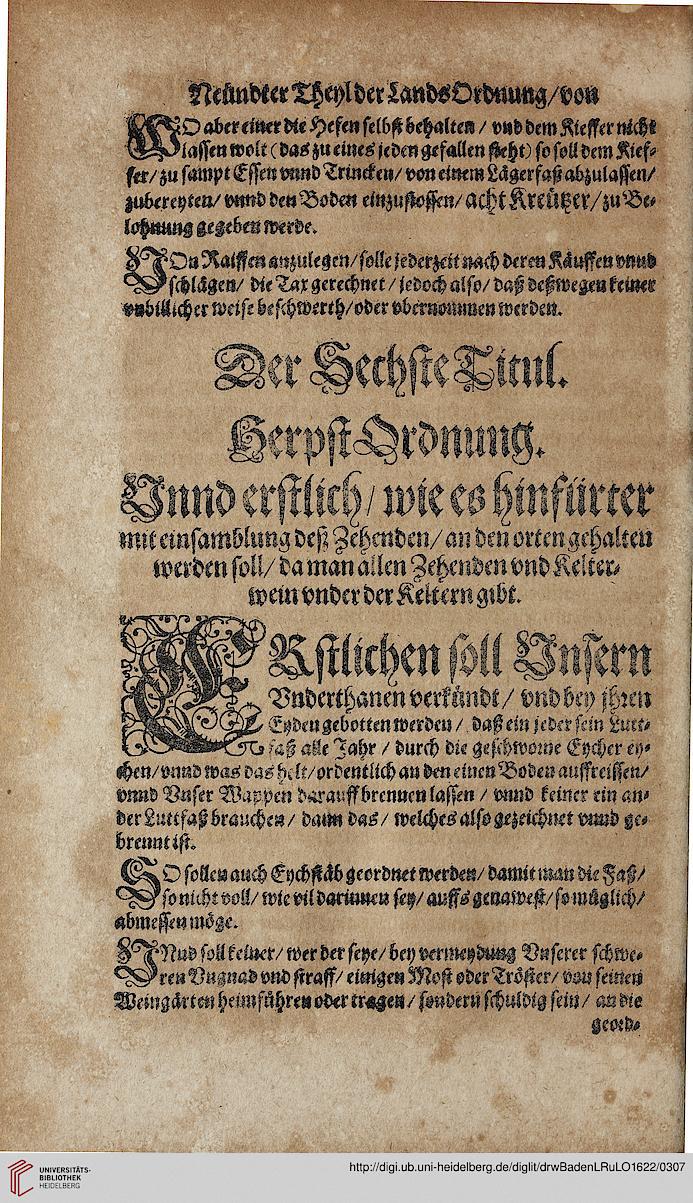 Neündter Theyl der Lands Ordnung/ von
WO aber einer die Hefen selbst behalten / vnd dem Kieffer nicht
lassen wolt (das zu eines jeden gefallen steht) so soll dem Kief-
fer/ zu sampt Essen vnnd Trincken/ von einem Lägerfaß abzulassen/
zubereyten/ vnnd den Boden einzustossen/ acht Kreützer/ zu Be-
lohnung gegeben werde.
VOn Raiffen anzulegen/ solle jederzeit nach deren Käuffen vnnd
schlägen/ die Tax gerechnet / jedoch also/ daß deßwegen keiner
vnbillicher weise beschwerth/ oder vbernommen werden.
Der Sechste Titul.
Herpst Ordnung.
Vnnd erstlich/ wie es hinfürter
mit einsamblung deß Zehenden/ an den orten gehalten
werden soll/ da man allen Zehenden vnd Kelter-
wein vnder der Keltern gibt.
ERstlichen soll Vnsern
Vnderthanen verkündt / vnd bey jhren
Eyden gebotten werden / daß ein jeder sein Lutt-
faß alle Jahr / durch die geschworne Eycher ey-
chen/ vnnd was das helt/ ordentlich an den einen Boden auffreissen/
vnnd Vnser Wappen darauff brennen lassen / vnnd keiner ein an-
der Luttfaß brauchen / dann das / welches also gezeichnet vnnd ge-
brennt ist.
SO sollen auch Eychstäb geordnet werden/ damit man die Faß/
so nicht voll/ wie vil darinnen sey/ auffs genawest/ so müglich/
abmessen möge.
VNnd soll keiner/ wer der seye/ bey vermeydung Vnserer schwe-
ren Vngnad vnd straff/ einigen Most oder Tröster/ von seinen
Weingärten heimführen oder tragen / sondern schuldig sein / an die
geord-
UNIVERSITÄTS-
BIBLIOTHEK
HEIDELBERG
http://digi.ub.uni-heidelberg.de/diglit/drwBadenLRuLO1622/0307